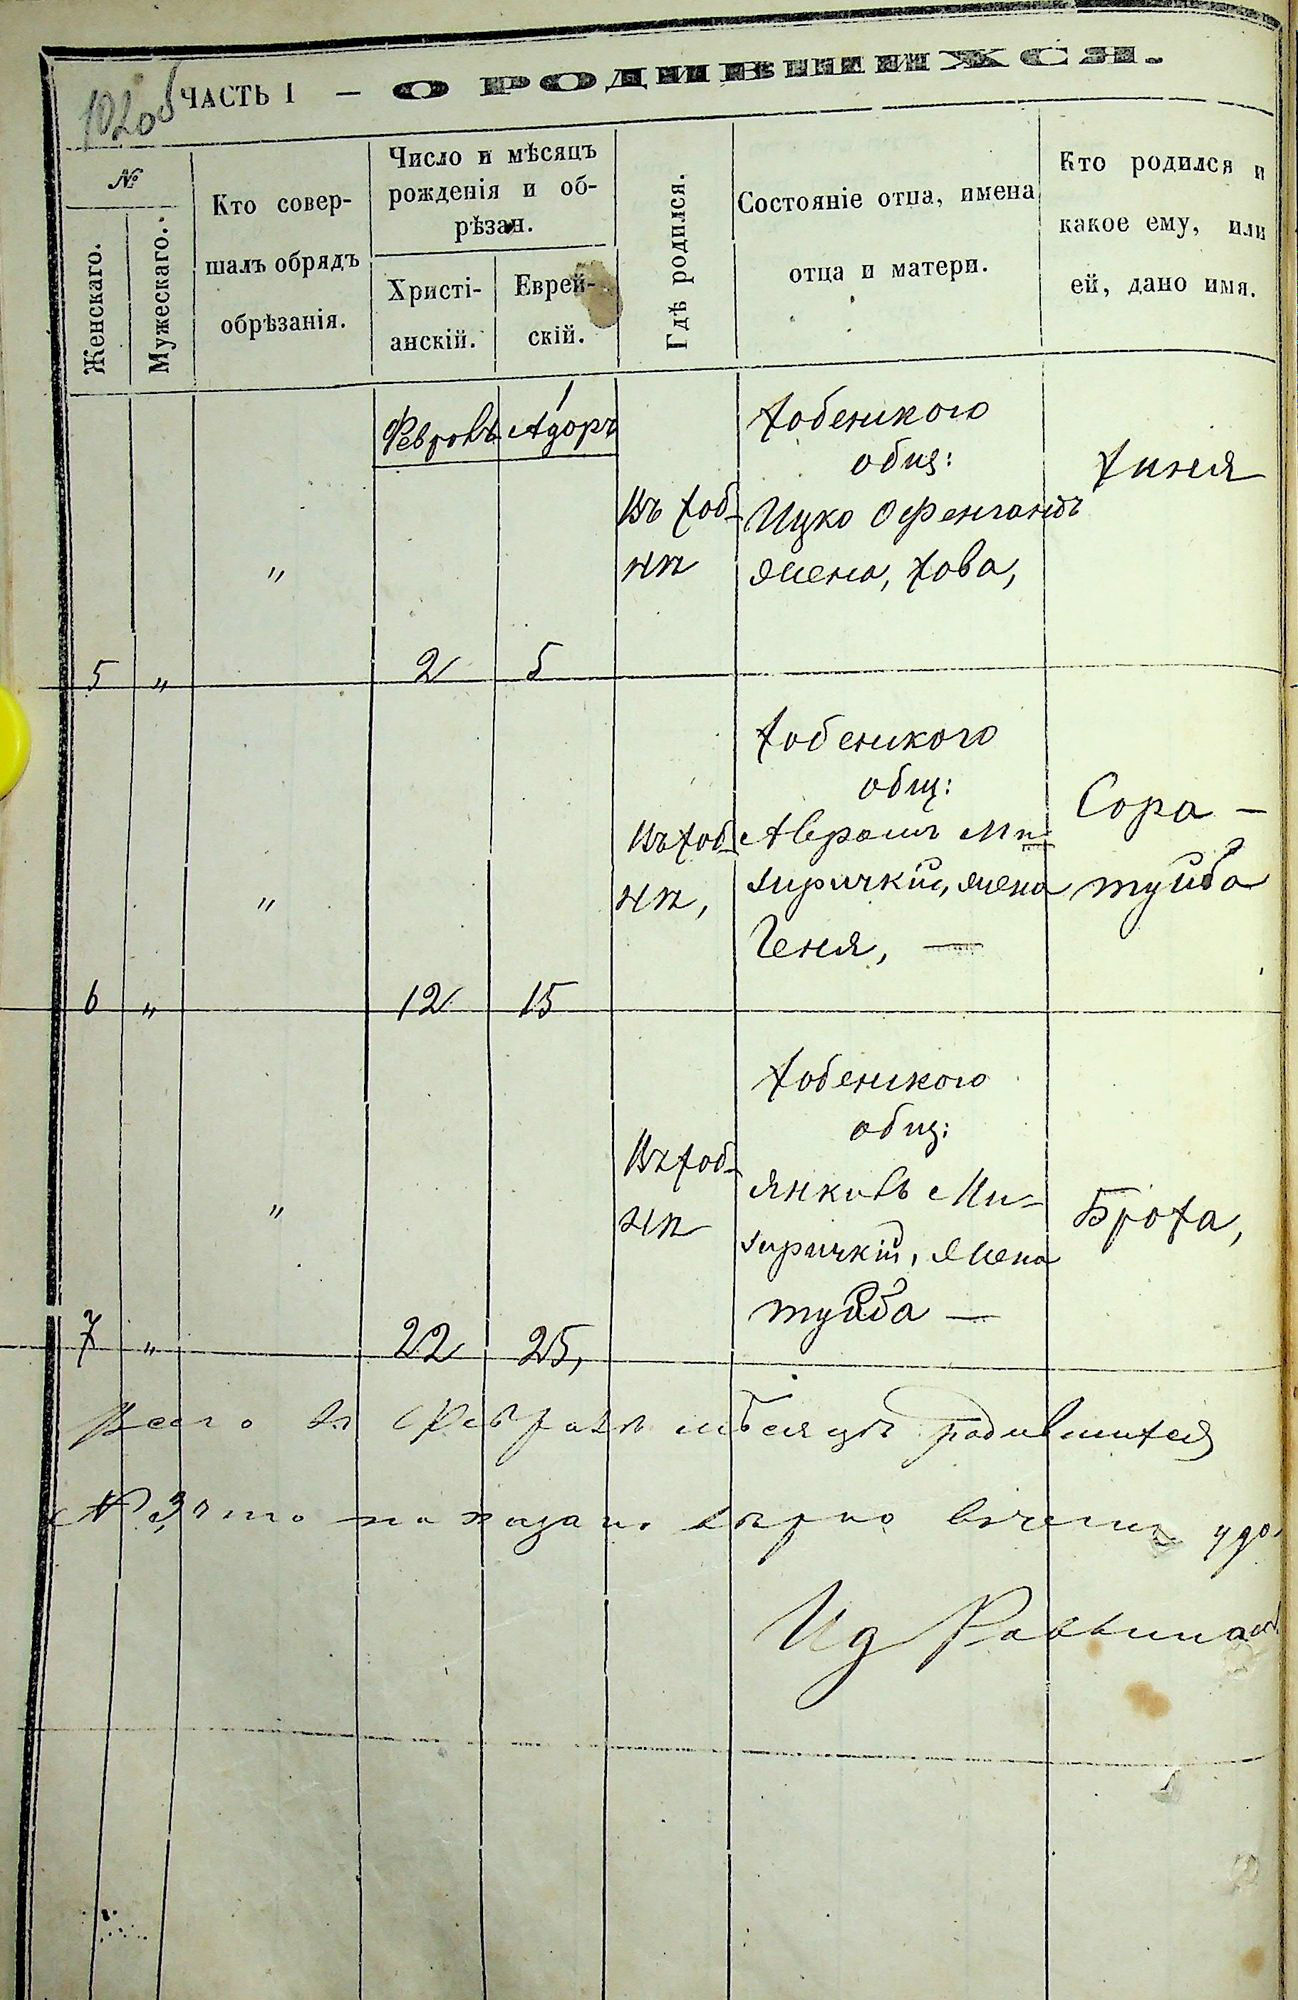 102об
ЧАСТЬ I — О РОДИВШИХСЯ.
№
Женскаго.
Мужескаго.
Кто совер-
шалъ обрядъ
обрѣзанія.
Число и мѣсяцъ
рожденія и об-
рѣзан.
Христі-
анскій.
Еврей-
скій.
Гдѣ родился.
Состояніе отца, имена
отца и матери.
Кто родился и
какое ему, или
ей, дано имя.
Февраль
Адоръ 1
5 „ „ 2 5
Въ Хоб-
нѣ
Хобенского
общ:
Ицко Офенгандъ
жена, Хова,
Хиня
6 „ „ 12 15
Въ Хоб-
нѣ,
Хобенского
общ:
Аврамъ Ми-
зиричкій, жена
Геня, —
Сора —
туйба
7 „ „ 22 25,
Въ Хоб-
нѣ
Хобенского
общ:
Янкивъ Ми-
зиричкій, жена
туйба —
Броха,
Всего въ Февралѣ мѣсяцѣ родившихся
№ 3, что показано вѣрно в чемъ удо